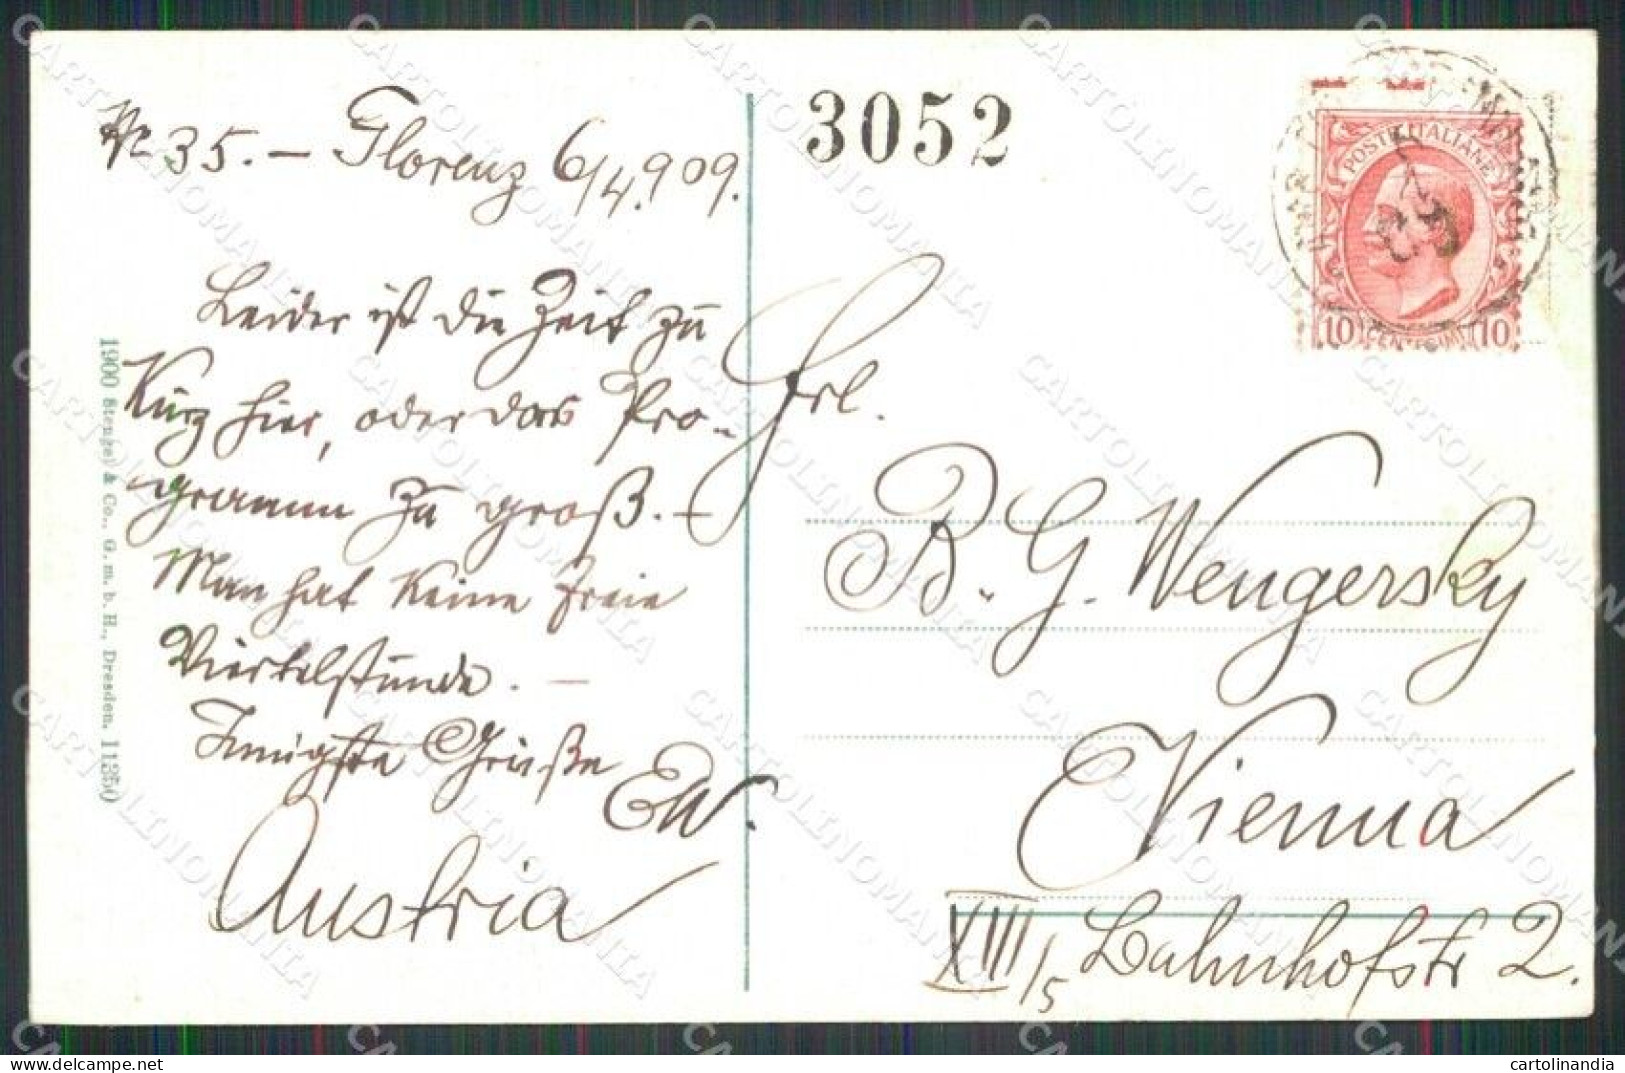 № 35. – Florenz 6/4.909.
Leider ist die Zeit zu
kurz hier, oder das Pro-
gramm zu groß. –
Man hat keine freie
Viertelstunde. –
Innigste Grüße
EW.
Austria
1900 Stengel & Co., G. m. b. H., Dresden. 11250
3052
POSTE ITALIANE
10 CENTESIMI 10
Frl.
B. G. Wengersky
Vienna
XIII/5 Bahnhofstr 2.
CARTOLINOMANIA
cartolinandia